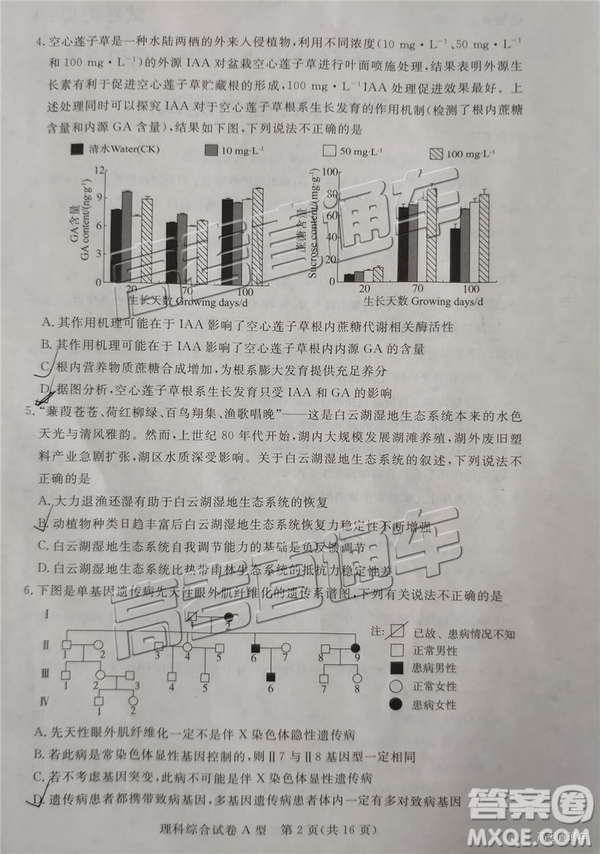 4. 空心莲子草是一种水陆两栖的外来入侵植物，利用不同浓度(10 mg·L⁻¹、50 mg·L⁻¹
和 100 mg·L⁻¹)的外源 IAA 对盆栽空心莲子草进行叶面喷施处理，结果表明外源生
长素有利于促进空心莲子草贮藏根的形成，100 mg·L⁻¹ IAA 处理促进效果最好。上
述处理同时可以探究 IAA 对于空心莲子草根系生长发育的作用机制(检测了根内蔗糖
含量和内源 GA 含量)，结果如下图，下列说法不正确的是
清水Water(CK) 10 mg·L⁻¹ 50 mg·L⁻¹ 100 mg·L⁻¹
GA含量
GA content/(ng·g⁻¹)
12
9
6
3
0
20 70 100
生长天数 Growing days/d
蔗糖含量
Sucrose content/(mg·g⁻¹)
100
80
60
40
20
0
20 70 100
生长天数 Growing days/d
A. 其作用机理可能在于 IAA 影响了空心莲子草根内蔗糖代谢相关酶活性
B. 其作用机理可能在于 IAA 影响了空心莲子草根内内源 GA 的含量
C. 根内营养物质蔗糖合成增加，为根系生长发育提供充足养分
D. 据图分析，空心莲子草根系生长发育只受 IAA 和 GA 的影响
5. “蒹葭苍苍、荷红柳绿、百鸟翔集、渔歌唱晚”——这是白云湖湿地生态系统本来的水色
天光与清风雅韵。然而，上世纪 80 年代开始，湖内大规模发展湖滩养殖，湖外废旧塑
料产业急剧扩张，湖区水质恶化、环境破坏。关于白云湖湿地生态系统的叙述，下列说法
不正确的是
A. 大力退渔还湿有助于白云湖湿地生态系统的恢复
B. 动植物种类日趋丰富后白云湖湿地生态系统抵抗力稳定性不断增强
C. 白云湖湿地生态系统自我调节能力的基础是负反馈调节
D. 白云湖湿地生态系统比热带雨林生态系统抵抗力稳定性差
6. 下图是单基因遗传病先天性眼外肌纤维化的遗传系谱图，下列有关说法不正确的是
Ⅰ
1 2
Ⅱ
1 2 3 4 5 6 7 8 9
Ⅲ
1 2 3 4 5 6 7
注:
已故、患病情况不知
正常男性
患病男性
正常女性
患病女性
A. 先天性眼外肌纤维化一定不是伴 X 染色体隐性遗传病
B. 若此病是常染色体显性基因控制的，则Ⅱ7 与Ⅱ8 基因型一定相同
C. 若不考虑基因突变，此病不可能是伴 X 染色体显性遗传病
D. 遗传病患者大都携带致病基因，多基因遗传病患者体内一定存在多对等位基因
理科综合试卷 A 型 第 2 页(共 16 页)
高考直通车
高考直通车
答案圈